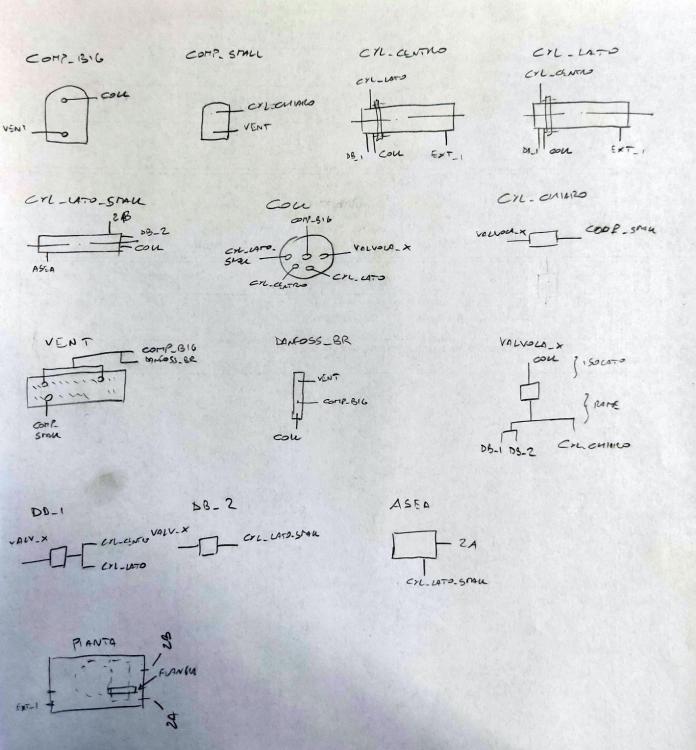 COMP_BIG
COLL
VENT
COMP_SMALL
CYL_CHIARO
VENT
CYL_CENTRO
CYL_LATO
DB_1 COLL EXT_1
CYL_LATO
CYL_CENTRO
DB_1 COLL EXT_1
CYL_LATO_SMALL
2B
DB_2
COLL
ASEA
COLL
COMP_BIG
CYL_LATO_
SMALL
VALVOLA_X
CYL_CENTRO
CYL_LATO
CYL_CHIARO
VALVOLA_X
COMP_SMALL
VENT
COMP_BIG
DANFOSS_BR
COMP_
SMALL
DANFOSS_BR
VENT
COMP_BIG
COLL
VALVOLA_X
COLL
ISOLATO
RAME
DB_1 DB_2
CYL_CHIARO
DB_1
VALV_X
CYL_CENTRO
CYL_LATO
DB_2
VALV_X
CYL_LATO_SMALL
ASEA
2A
CYL_LATO_SMALL
PIANTA
2B
FLANGIA
EXT_1
2A